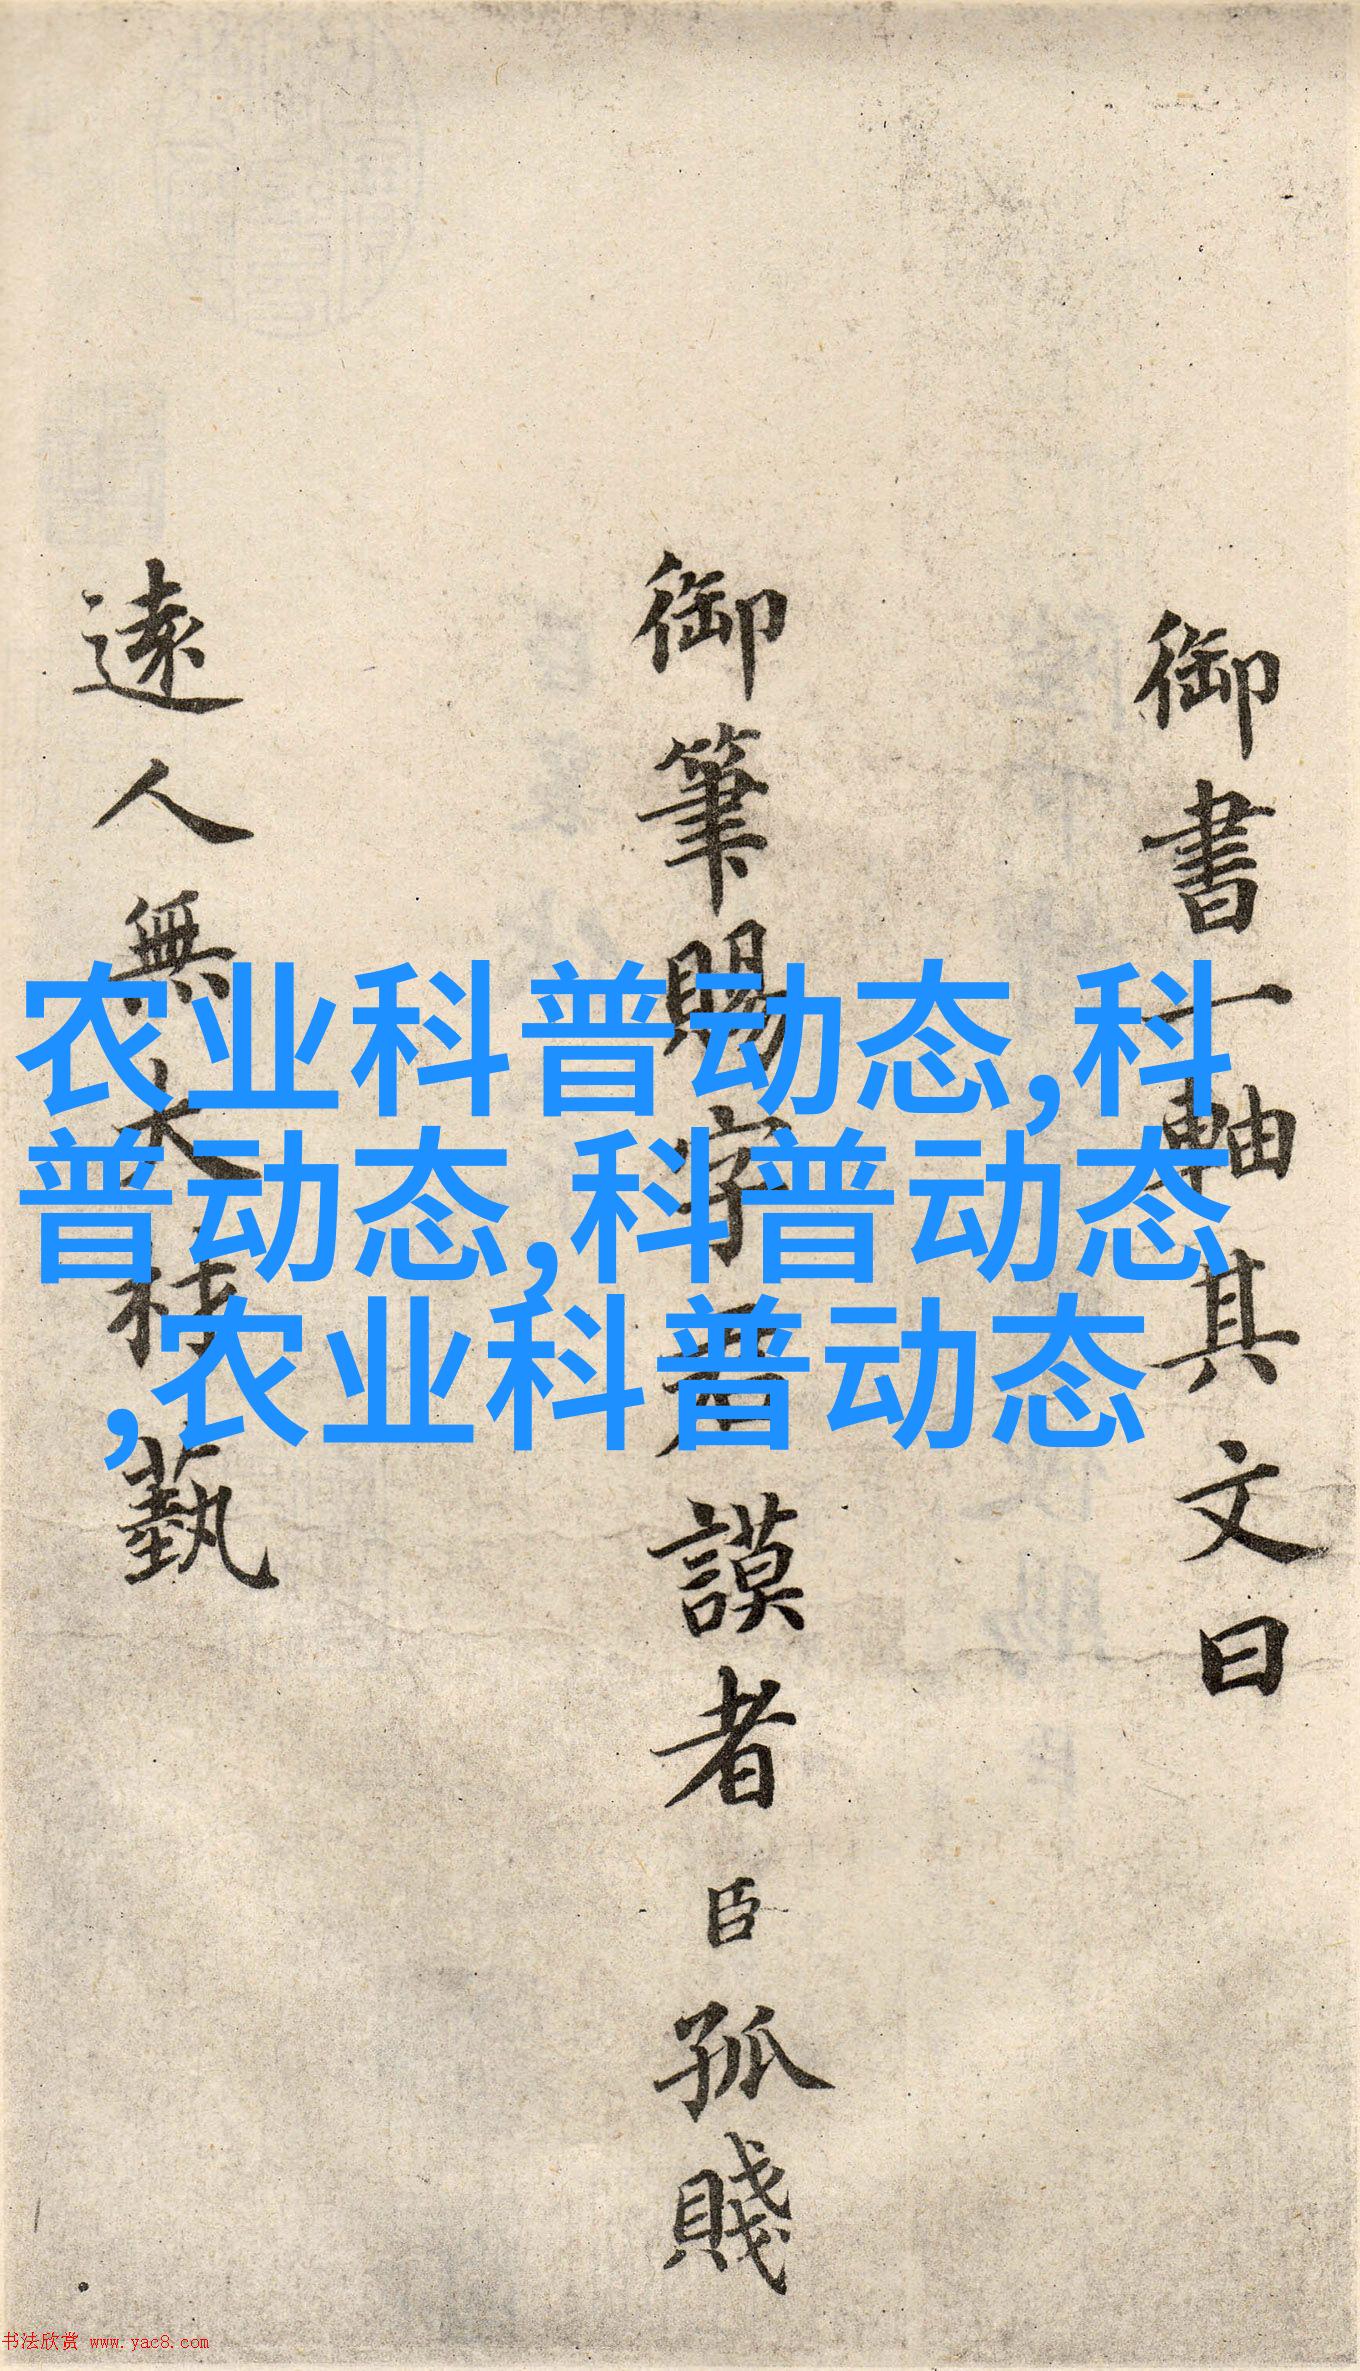 御書一軸其文曰
御筆賜字君謨者臣孤賤
遠人無大材藝
农业科普动态,科
普动态,科普动态
,农业科普动态
书法欣赏 www.yac8.com